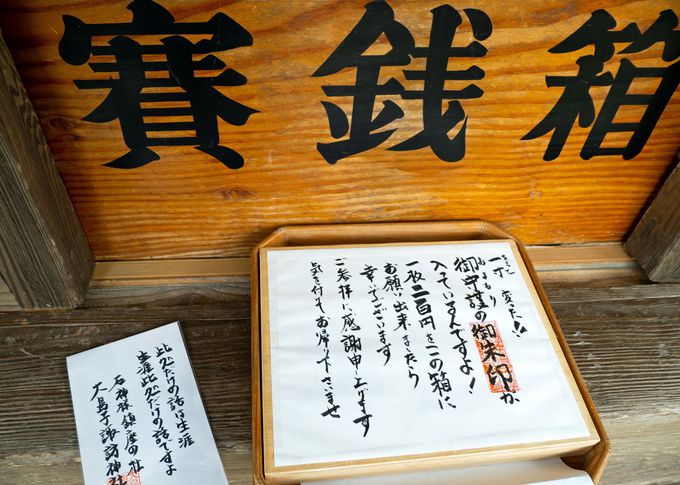 賽銭箱
一寸 変だ!!
おまもり
御守護の御朱印が
入っているんですよ!
一枚二百円をこの箱に
お願い出来ましたら
幸いでございます
ご参拝に感謝申し上げます
気を付けてお帰り下さいませ
此処だけの話は生涯
生涯此処だけの話ですよ
石神様鎮座の社
大島子諏訪神社